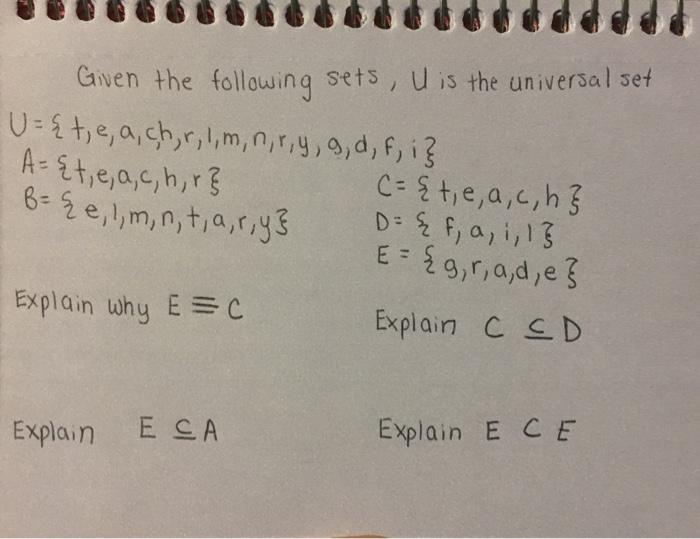 Given the following sets, U is the universal set
U = {t,e,a,c,h,r,l,m,n,r,y,g,d,f,i}
A = {t,e,a,c,h,r}
B = {e,l,m,n,t,a,r,y}
C = {t,e,a,c,h}
D = {f,a,i,l}
E = {g,r,a,d,e}
Explain why E ≡ C
Explain C ⊆ D
Explain E ⊆ A
Explain E ⊂ E